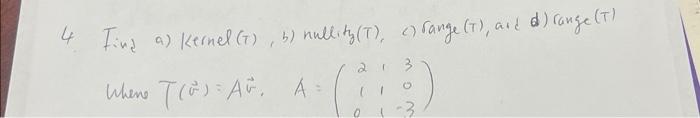 4 Find a) Kernel(T), b) nullity(T), c) range(T), and d) range(T)
Where T(v⃗) = Av⃗. A = ( 2 1 3
1 1 0
0 1 -3 )